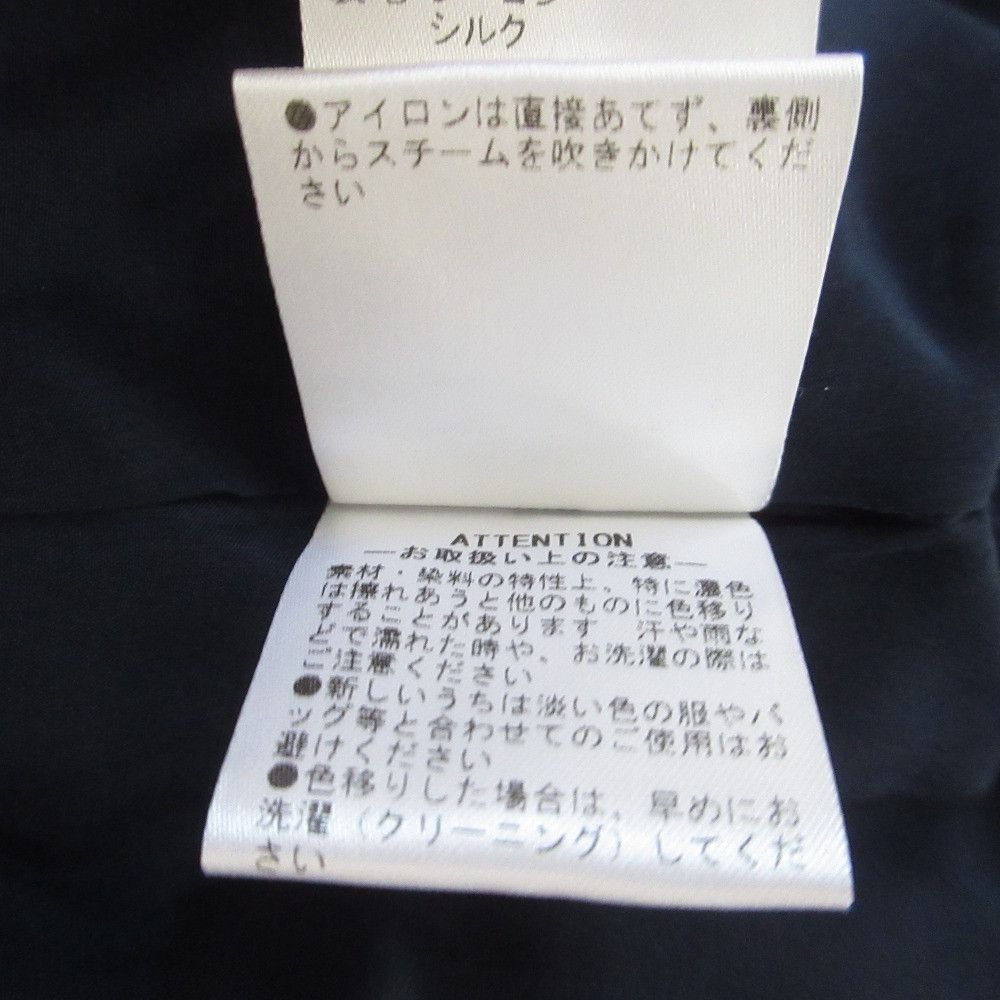 シルク
●アイロンは直接あてず、裏側
からスチームを吹きかけてくだ
さい
ATTENTION
―お取扱い上の注意―
素材・染料の特性上、特に濃色
は擦れあうと他のものに色移り
することがあります。汗や雨な
どで濡れた時や、お洗濯の際は
ご注意ください
●新しいうちは淡い色の服やバ
ッグ等と合わせてのご使用はお
避けください
●色移りした場合は、早めにお
洗濯（クリーニング）してくだ
さい